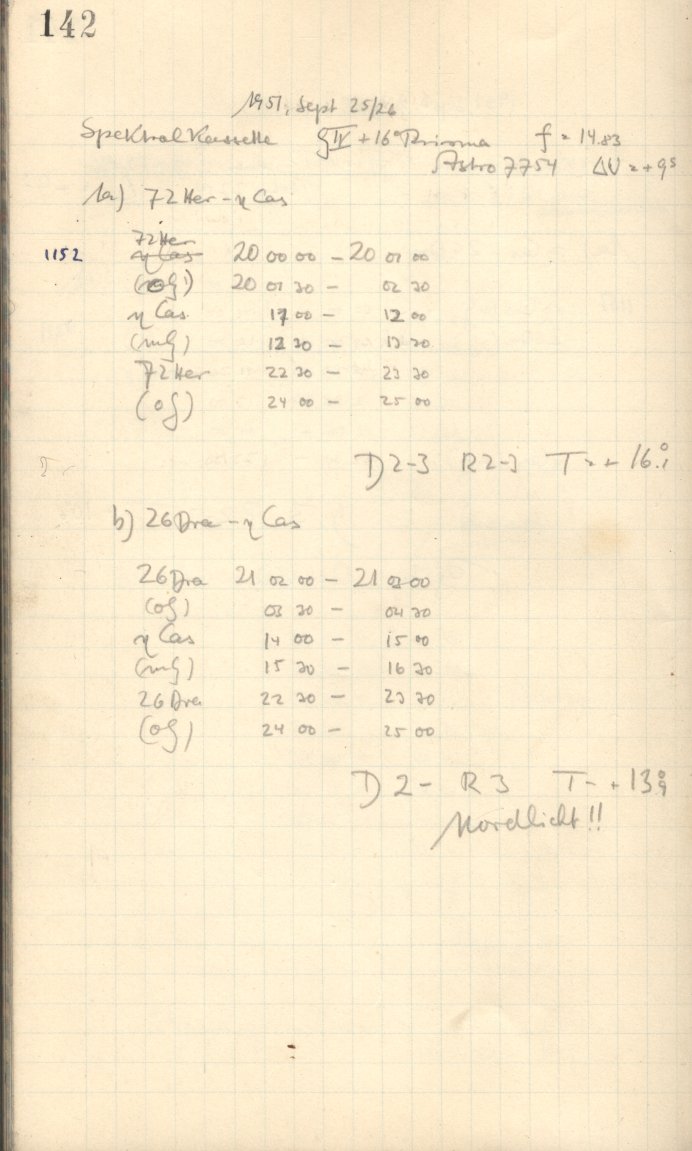 142
1951, Sept 25/26
Spektralkassette gIV + 16° Prisma f = 14.83
Astro 7754 ΔU = + 9s
1a) 72 Her - η Cas
72 Her
1152 η Cas 20 00 00 - 20 01 00
(og) 20 01 30 - 02 30
η Cas 11 00 - 12 00
(mg) 12 30 - 13 30
72 Her 22 30 - 23 30
(og) 24 00 - 25 00
D 2-3 R 2-3 T = + 16.°1
b) 26 Dra - η Cas
26 Dra 21 02 00 - 21 03 00
(og) 03 30 - 04 30
η Cas 14 00 - 15 00
(mg) 15 30 - 16 30
26 Dra 22 30 - 23 30
(og) 24 00 - 25 00
D 2- R 3 T = + 13.°9
Nordlicht!!